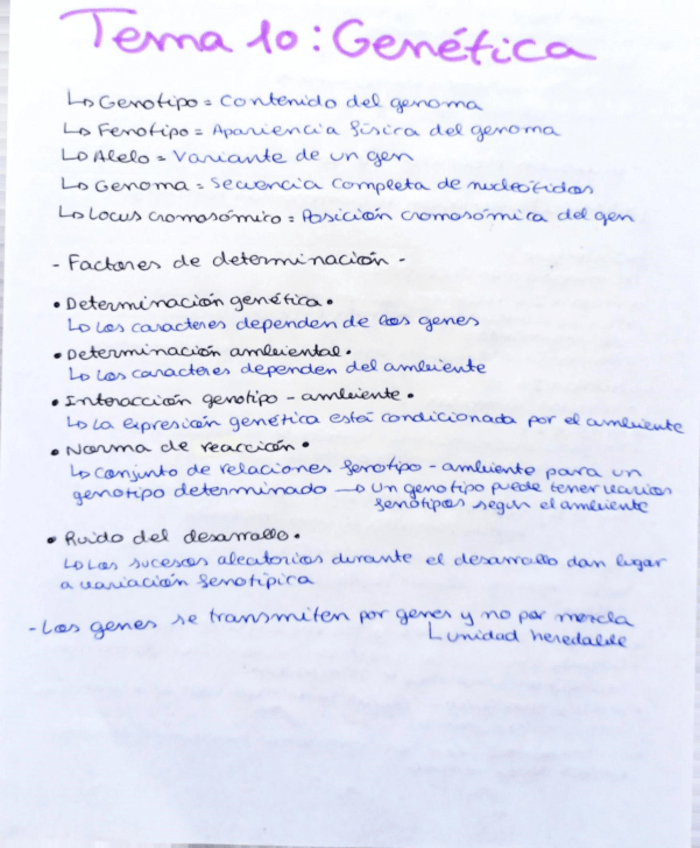 Tema 10: Genética
↳ Genotipo = Contenido del genoma
↳ Fenotipo = Apariencia física del genoma
↳ Alelo = Variante de un gen
↳ Genoma = Secuencia completa de nucleótidos
↳ Locus cromosómico = Posición cromosómica del gen
- Factores de determinación -
• Determinación genética •
↳ Los caracteres dependen de los genes
• Determinación ambiental •
↳ Los caracteres dependen del ambiente
• Interacción genotipo - ambiente •
↳ La expresión genética está condicionada por el ambiente
• Norma de reacción •
↳ Conjunto de relaciones fenotipo - ambiente para un
genotipo determinado → Un genotipo puede tener varios
fenotipos según el ambiente
• Ruido del desarrollo •
↳ Los sucesos aleatorios durante el desarrollo dan lugar
a variación fenotípica
- Los genes se transmiten por genes y no por mezcla
↳ unidad heredable